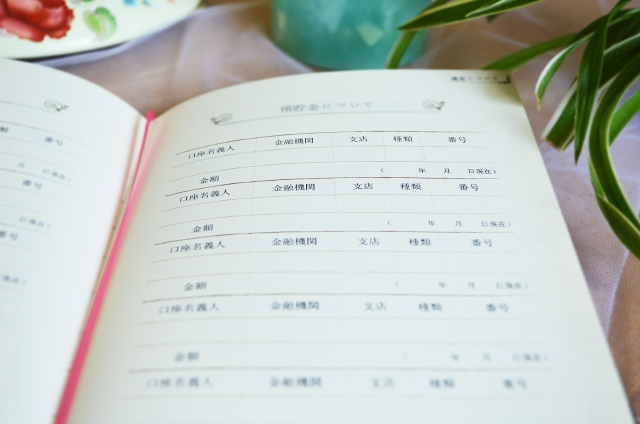 預貯金について
口座名義人 金融機関 支店 種類 番号
金額 ( 年 月 日現在)
口座名義人 金融機関 支店 種類 番号
金額 ( 年 月 日現在)
口座名義人 金融機関 支店 種類 番号
金額 ( 年 月 日現在)
口座名義人 金融機関 支店 種類 番号
金額 ( 年 月 日現在)
口座名義人 金融機関 支店 種類 番号
種類 番号
月 日現在)
番号
日現在)
番号
日現在)